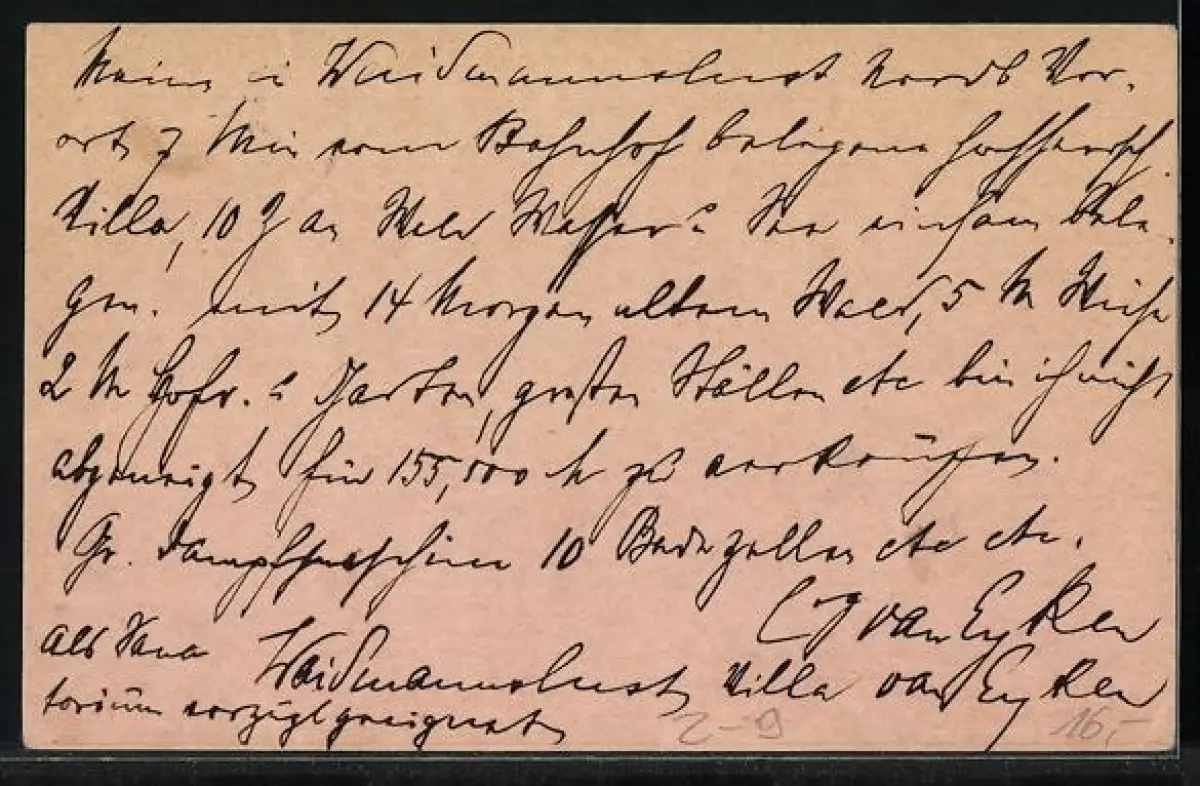 Meine in Waidmannslust Nordb Vor-
ort, 7 Min vom Bahnhof belegene hochherrsch.
Villa, 10 Z an Wald Wasser u See einsam bele-
gen. mit 14 Morgen altem Wald, 5 M Wiese
2 M Hofr. u Garten, großen Ställen etc bin ich nicht
abgeneigt für 155,000 M zu verkaufen.
Gr. Dampfmaschine 10 Badezellen etc etc.
C J van Eyken
als Sana
torium vorzügl geeignet
Waidmannslust, Villa van Eyken
2-9
16,-